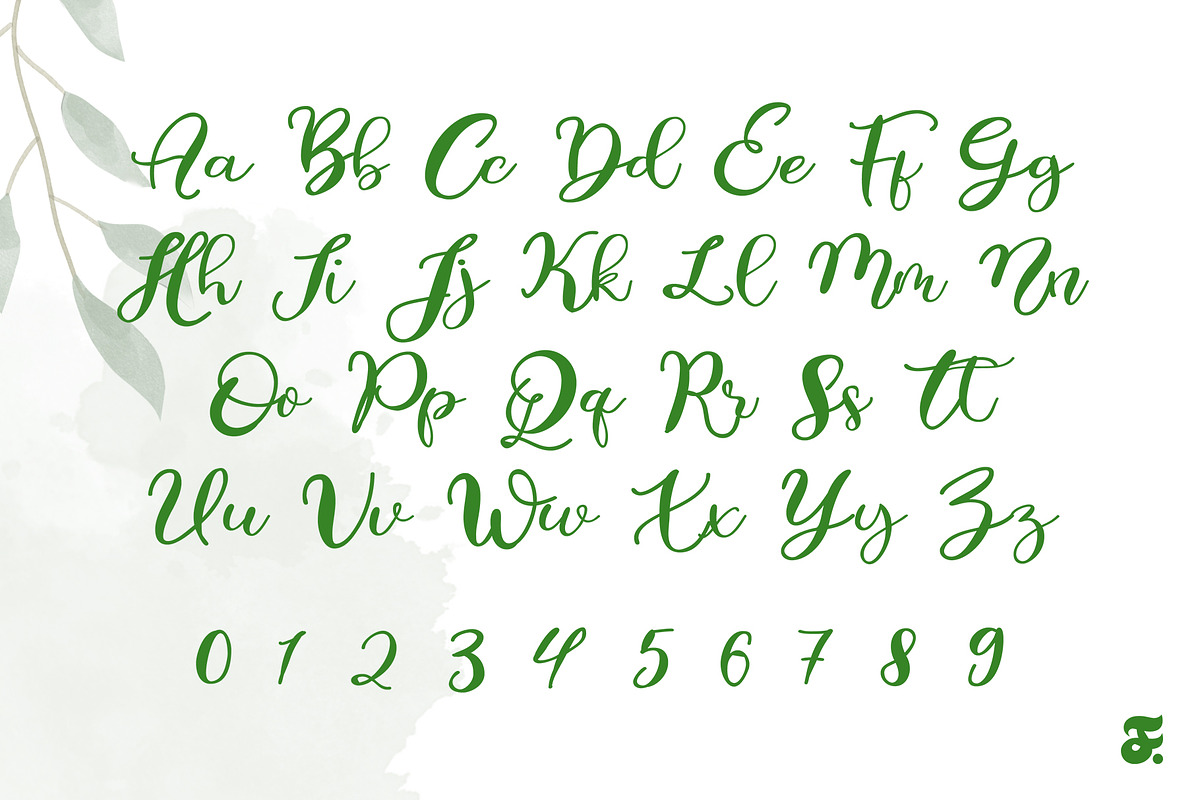 Aa Bb Cc Dd Ee Ff Gg
Hh Ii Jj Kk Ll Mm Nn
Oo Pp Qq Rr Ss Tt
Uu Vv Ww Xx Yy Zz
0 1 2 3 4 5 6 7 8 9
F.